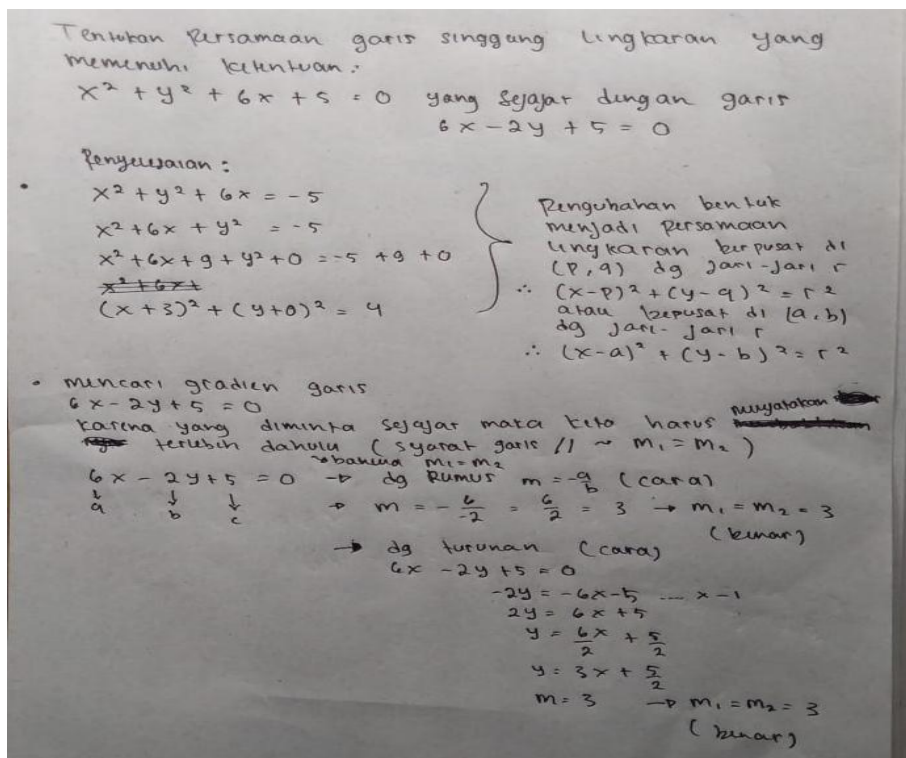 Tentukan Persamaan garis singgung lingkaran yang
memenuhi ketentuan :
x² + y² + 6x + 5 = 0 yang sejajar dengan garis
6x - 2y + 5 = 0
Penyelesaian :
• x² + y² + 6x = -5
x² + 6x + y² = -5
x² + 6x + 9 + y² + 0 = -5 + 9 + 0
x² + 6x +
(x + 3)² + (y + 0)² = 4
Pengubahan bentuk
menjadi persamaan
lingkaran berpusat di
(p, q) dg jari-jari r
∴ (x - p)² + (y - q)² = r²
atau berpusat di (a, b)
dg jari-jari r
∴ (x - a)² + (y - b)² = r²
• mencari gradien garis
6x - 2y + 5 = 0
karena yang diminta sejajar maka kita harus menyatakan
terlebih dahulu (syarat garis // ~ m₁ = m₂)
↘ bahwa m₁ = m₂
6x - 2y + 5 = 0 → dg Rumus m = -a/b (cara)
↓ ↓ ↓
a b c
→ m = - 6/-2 = 6/2 = 3 → m₁ = m₂ = 3
(benar)
→ dg turunan (cara)
6x - 2y + 5 = 0
-2y = -6x - 5 .... x - 1
2y = 6x + 5
y = 6x/2 + 5/2
y = 3x + 5/2
m = 3 → m₁ = m₂ = 3
(benar)